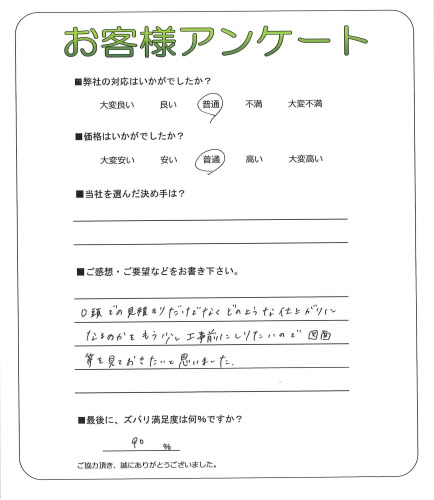 お客様アンケート
■弊社の対応はいかがでしたか？
大変良い 良い 普通 不満 大変不満
■価格はいかがでしたか？
大変安い 安い 普通 高い 大変高い
■当社を選んだ決め手は？
■ご感想・ご要望などをお書き下さい。
口頭での見積りだけでなくどのような仕上がりに
なるのかをもう少し工事前にしりたいので図面
等を見ておきたいと思いました.
■最後に、ズバリ満足度は何％ですか？
90 %
ご協力頂き、誠にありがとうございました。